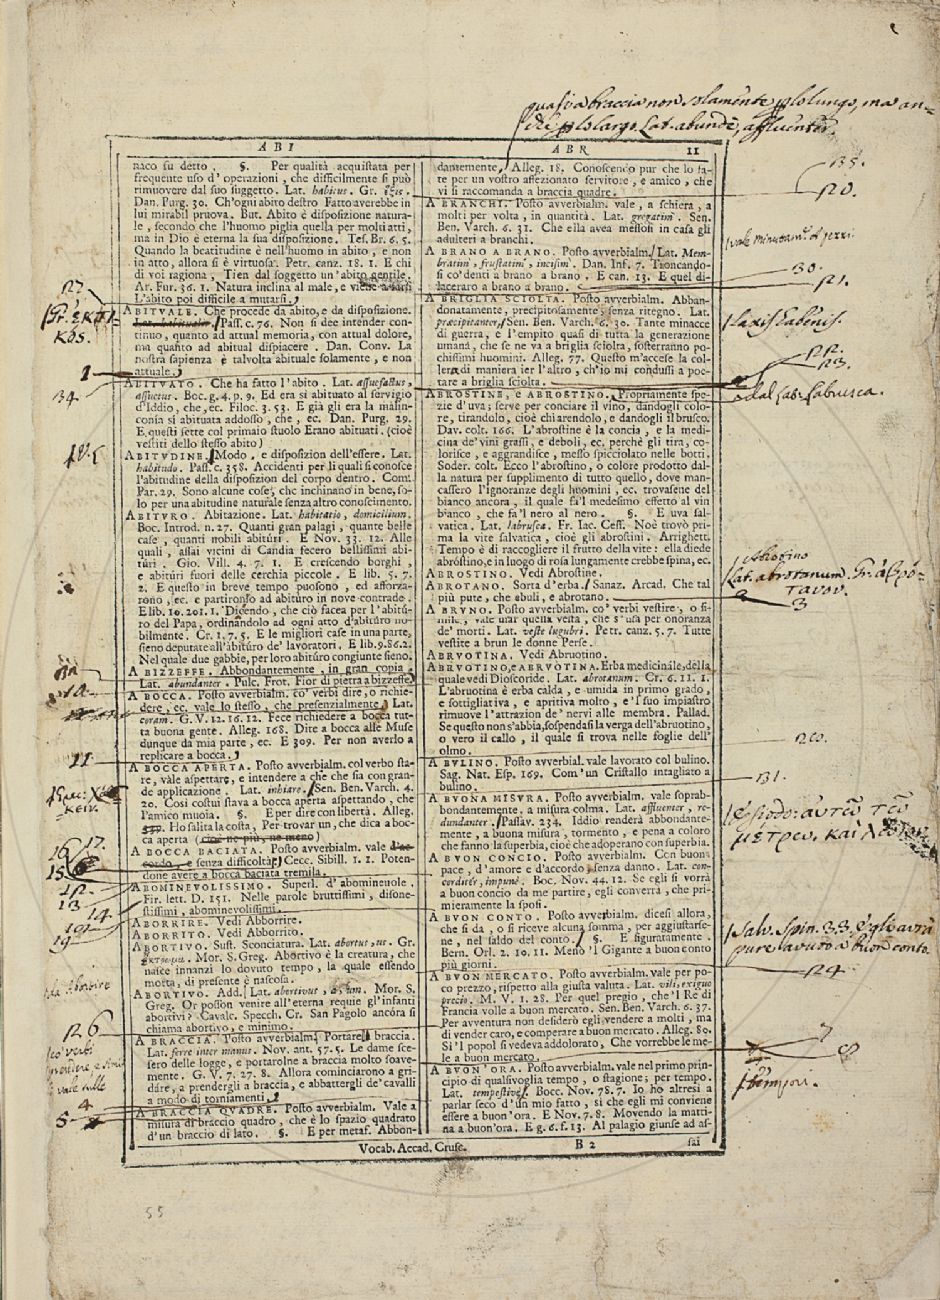 quasi a braccia non solamente
A B I
A B R
11
naco su detto. §. Per qualità acquistata per
frequente uso d'operazioni, che difficilmente si può
rimuovere dal suo suggetto. Lat. habitus. Gr. ἕξις.
Dan. Purg. 30. Ch'ogni abito destro Fatto averebbe in
lui mirabil pruova. But. Abito è disposizione natura-
le, secondo che l'huomo piglia quella per molti atti,
ma in Dio è eterna la sua disposizione. Tes. Br. 6. 5.
Quando la beatitudine è nell'huomo in abito, e non
in atto, allora si è virtuosa. Petr. canz. 18. 1. E chi
di voi ragiona, Tien dal soggetto un'abito gentile.
Ar. Fur. 36. 1. Natura inclina al male, e viene a farsi
L'abito poi difficile a mutarsi.
ABITUALE. Che procede da abito, e da disposizione.
Lat. habitualis. Pass. c. 76. Non si dee intender con-
tinuo, quanto ad attual memoria, con attual dolore,
ma quanto ad abitual dispiacere. Dan. Conv. La
nostra sapienza è talvolta abituale solamente, e non
attuale.
ABITUATO. Che ha fatto l'abito. Lat. assuefactus,
assuetus. Boc. g. 4. p. 9. Ed era sì abituato al servigio
d'Iddio, che, ec. Filoc. 3. 53. E già gli era la malin-
conia sì abituata addosso, che, ec. Dan. Purg. 29.
E questi sette col primaio stuolo Erano abituati. (cioè
vestiti dello stesso abito)
ABITUDINE. Modo, e disposizion dell'essere. Lat.
habitudo. Pass. c. 358. Accidenti per li quali si conosce
l'abitudine della disposizion del corpo dentro. Com.
Par. 29. Sono alcune cose, che inchinano in bene, so-
lo per una abitudine naturale senza altro conoscimento.
ABITURO. Abitazione. Lat. habitatio, domicilium.
Boc. Introd. n. 27. Quanti gran palagi, quante belle
case, quanti nobili abitúri. E Nov. 33. 12. Alle
quali, assai vicini di Candia fecero bellissimi abi-
túri. Gio. Vill. 4. 7. 1. E crescendo borghi,
e abitúri fuori delle cerchia piccole. E lib. 5. 7.
2. E questo in breve tempo puosono, ed afforza-
rono, ec. e partironso ad abitúro in nove contrade.
E lib. 10. 201. 1. Dicendo, che ciò facea per l'abitú-
ro del Papa, ordinandolo ad ogni atto d'abitúro no-
bilmente. Cr. 1. 7. 5. E le migliori case in una parte,
sieno deputate all'abitúro de' lavoratori. E lib. 9. 86. 2.
Nel quale due gabbie, per loro abitúro congiunte sieno.
A BIZZEFFE. Abbondantemente, in gran copia.
Lat. abundanter. Pulc. Frot. Fior di pietra a bizzeffe
A BOCCA. Posto avverbialm. co' verbi dire, o richie-
dere, ec. vale lo stesso, che presenzialmente. Lat.
coram. G. V. 12. 16. 12. Fece richiedere a bocca tut-
ta buona gente. Alleg. 168. Dite a bocca alle Muse
dunque da mia parte, ec. E 309. Per non averlo a
replicare a bocca.
A BOCCA APERTA. Posto avverbialm. col verbo sta-
re, vale aspettare, e intendere a che che sia con gran-
de applicazione. Lat. inhiare. Sen. Ben. Varch. 4.
20. Così costui stava a bocca aperta aspettando, che
l'amico muoia. §. E per dire con libertà. Alleg.
Ho salita la costa, Per trovar un, che dica a boc-
ca aperta (cioè nè più, nè meno)
A BOCCA BACIATA. Posto avverbialm. vale d'ac-
cordo, e senza difficoltà. Cecc. Sibill. 1. 1. Poten-
done avere a bocca baciata tremila.
ABOMINEVOLISSIMO. Superl. d'abominevole.
Fir. lett. D. 151. Nelle parole bruttissimi, disone-
stissimi, abominevolissimi.
ABORRIRE. Vedi Abborrire.
ABORRITO. Vedi Abborrito.
ABORTIVO. Sust. Sconciatura. Lat. abortus, us. Gr.
ἔκτρωμα. Mor. S. Greg. Abortivo è la creatura, che
nasce innanzi lo dovuto tempo, la quale essendo
morta, di presente è nascosa.
ABORTIVO. Add. Lat. abortivus, a, um. Mor. S.
Greg. Or possón venire all'eterna requie gl'infanti
abortivi? Cavalc. Specch. Cr. San Pagolo ancóra si
chiama abortivo, e minimo.
A BRACCIA. Posto avverbialm. Portare a braccia.
Lat. ferre inter manus. Nov. ant. 57. 5. Le dame sce-
sero delle logge, e portarolne a braccia molto soave-
mente. G. V. 7. 27. 8. Allora cominciarono a gri-
dare, a prendergli a braccia, e abbattergli de' cavalli
a modo di torniamenti.
A BRACCIA QUADRE. Posto avverbialm. Vale a
misura di braccio quadro, che è lo spazio quadrato
d'un braccio di lato. §. E per metaf. Abbon-
dantemente, Alleg. 18. Conoscendo pur che lo fa-
te per un vostro affezionato servitore, e amico, che
vi si raccomanda a braccia quadre.
A BRANCHI. Posto avverbialm. vale, a schiera, a
molti per volta, in quantità. Lat. gregatim. Sen.
Ben. Varch. 6. 31. Che ella avea messoli in casa gli
adulteri a branchi.
A BRANO A BRANO. Posto avverbialm. Lat. Mem-
bratim, frustatim, incisim. Dan. Inf. 7. Troncando-
si co' denti a brano a brano. E can. 13. E quel di-
laceraro a brano a brano.
A BRIGLIA SCIOLTA. Posto avverbialm. Abban-
donatamente, precipitosamente, senza ritegno. Lat.
præcipitanter. Sen. Ben. Varch. 6. 30. Tante minacce
di guerra, e l'empito quasi di tutta la generazione
umana, che se ne va a briglia sciolta, sosterranno po-
chissimi huomini. Alleg. 77. Questo m'accese la col-
lera di maniera ier l'altro, ch'io mi condussi a poe-
tare a briglia sciolta.
ABROSTINE, e ABROSTINO. Propriamente spe-
zie d'uva; serve per conciare il vino, dandogli colo-
re, tirandolo, cioè chiarendolo, e dandogli il brusco.
Dav. colt. 166. L'abrostine è la concia, e la medici-
na de' vini grassi, e deboli, ec. perchè gli tira, co-
lorisce, e aggrandisce, messo spicciolato nelle botti.
Soder. colt. Ecco l'abrostino, o colore prodotto dal-
la natura per supplimento di tutto quello, dove man-
cassero l'ignoranze degli huomini, ec. trovasene del
bianco ancora, il quale fa'l medesimo effetto al vin
bianco, che fa'l nero al nero. §. E uva sal-
vatica. Lat. labrusca. Fr. Iac. Cess. Noè trovò pri-
ma la vite salvatica, cioè gli abrostini. Arrighett.
Tempo è di raccogliere il frutto della vite: ella diede
abróstino, e in luogo di rosa lungamente crebbe spina, ec.
ABROSTINO. Vedi Abrostine.
ABROTANO. Sorta d'erba. Sanaz. Arcad. Che tal
più pute, che ebuli, e abrotano.
A BRUNO. Posto avverbialm. co' verbi vestire, o si-
mili, vale usar quella vesta, che s'usa per onoranza
de' morti. Lat. veste lugubri. Petr. canz. 5. 7. Tutte
vestite a brun le donne Perse.
ABRUOTINA. Vedi Abruotino.
ABRUOTINO, e ABRUOTINA. Erba medicinále, della
quale vedi Dioscoride. Lat. abrotanum. Cr. 6. 11. 1.
L'abruotina è erba calda, e umida in primo grado,
e sottigliativa, e apritiva molto, e'l suo impiastro
rimuove l'attrazion de' nervi alle membra. Pallad.
Se questo non s'abbia, sospendasi la verga dell'abruotino,
o vero il callo, il quale si trova nelle foglie dell'
olmo.
A BULINO. Posto avverbial. vale lavorato col bulino.
Sag. Nat. Esp. 169. Com'un Cristallo intagliato a
bulino.
A BUONA MISURA. Posto avverbialm. vale soprab-
bondantemente, a misura colma. Lat. affluenter, re-
dundanter. Passav. 234. Iddio renderà abbondante-
mente, a buona misura, tormento, e pena a coloro
che fanno la superbia, cioè che adoperano con superbia.
A BUON CONCIO. Posto avverbialm. Con buona
pace, d'amore e d'accordo, senza danno. Lat. con-
corditer, impunè. Boc. Nov. 44. 12. Se egli si vorrà
a buon concio da me partire, egli converrà, che pri-
mieramente la sposi.
A BUON CONTO. Posto avverbialm. dicesi allora,
che si dà, o si riceve alcuna somma, per aggiustarse-
ne, nel saldo del conto. §. E figuratamente.
Bern. Orl. 2. 10. 11. Menò 'l Gigante a buon conto
più giorni.
A BUON MERCATO. Posto avverbialm. vale per po-
co prezzo, rispetto alla giusta valuta. Lat. vili, exiguo
precio. M. V. 1. 28. Per quel pregio, che'l Re di
Francia volle a buon mercato. Sen. Ben. Varch. 6. 37.
Per avventura non desiderò egli vendere a molti, ma
di vender caro, e comperare a buon mercato. Alleg. 80.
Si 'l popol si vedeva addolorato, Che vorrebbe le me-
le a buon mercato.
A BUON'ORA. Posto avverbialm. vale nel primo prin-
cipio di qualsivoglia tempo, o stagione; per tempo.
Lat. tempestivè. Bocc. Nov. 78. 7. Io ho altresì a
parlar seco d'un mio fatto, sì che egli mi conviene
essere a buon'ora. E Nov. 7. 8. Movendo la matti-
na a buon'ora. E g. 6. f. 13. Al palagio giunse ad as-
Vocab. Accad. Cruse.
B 2
sai
135.
20.
30.
21.
laxis habenis.
22.
23.
dal Lat. labrusca.
Abrotino
Lat. abrotanum. Gr. ἀβρό-
τανον.
3
20.
131.
24
7
8
34
1
11
16
17.
15
12
13
14
19
26
4
5
55